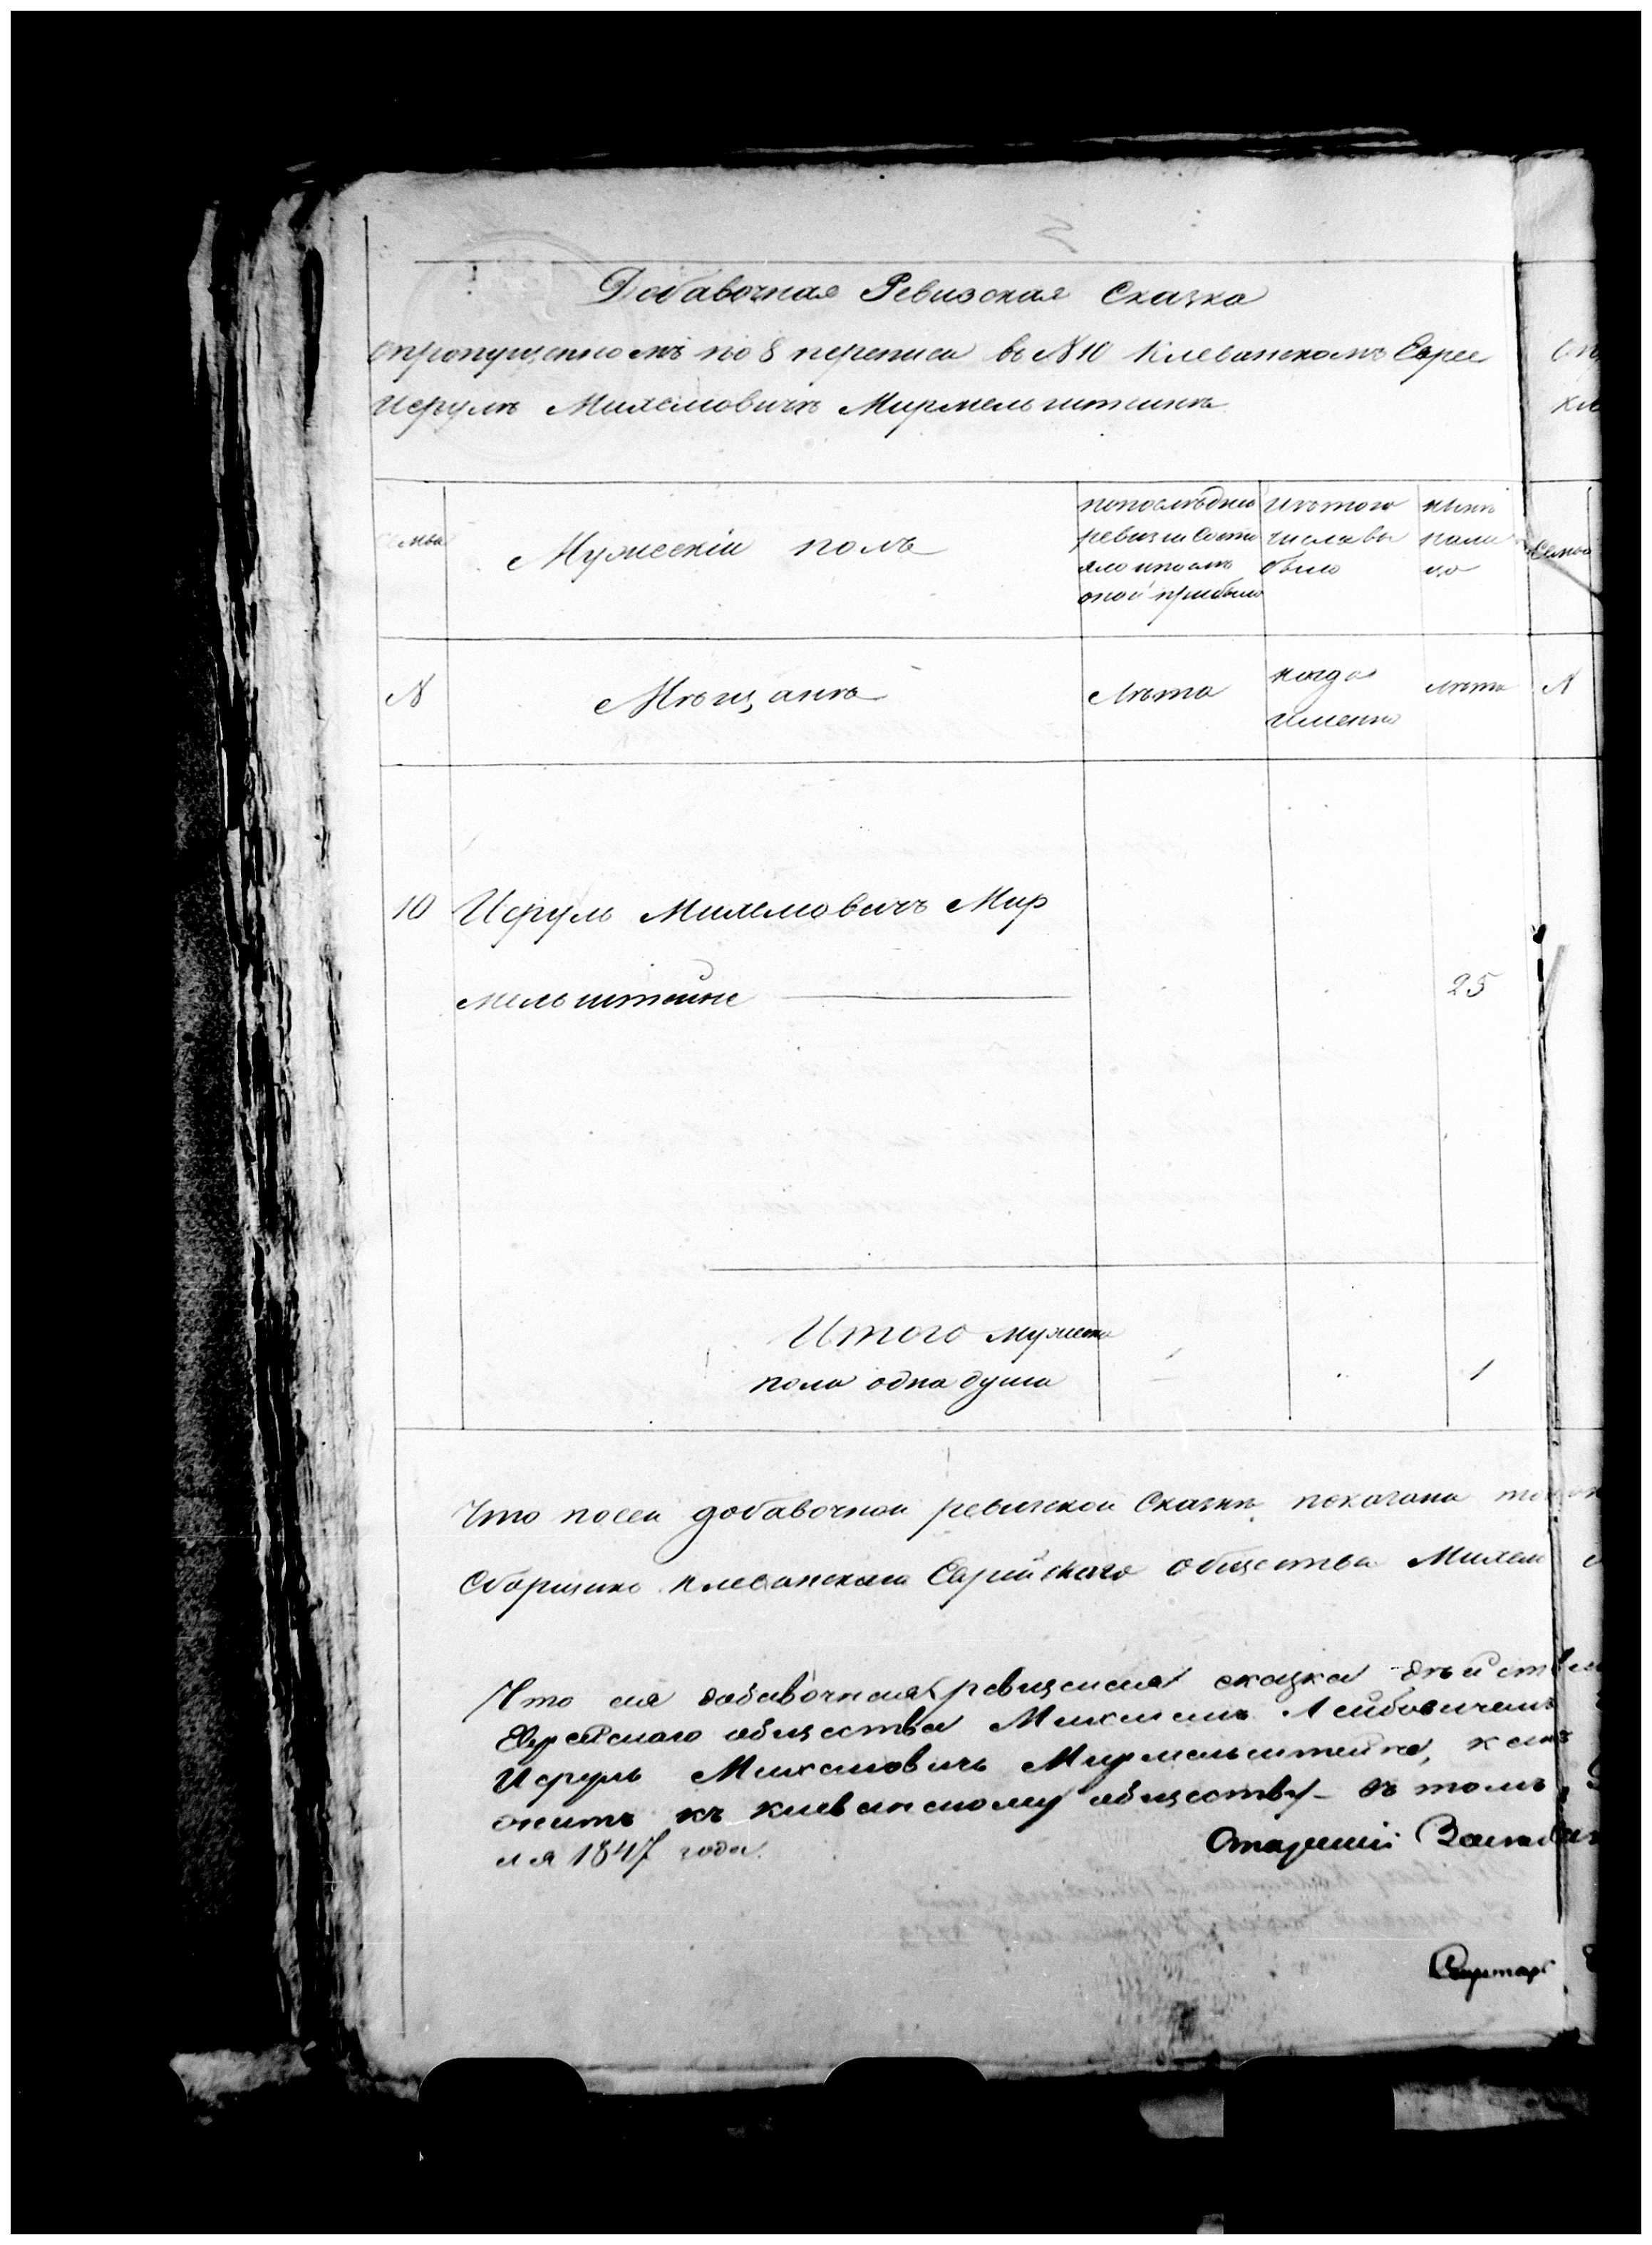 Добавочная Ревизская Сказка
опропущенномъ по 8 переписи въ N 10 Клеванскомъ Еврее
Исрулѣ Михелювичѣ Мирмельштеинѣ
семьи
Мужескій полъ
попослѣдней
ревизіи состо
яло ипослѣ
оной прибыло
Изътого
числа вы
было
нынѣ
на ли
цо
Семьи
N
Мѣщанѣ
Лѣта
когда
именно
лѣта
N
10 Исруль Михелювичъ Мир
мельштейнъ
25
Итого мужеска
пола одна душа
1
Что посей добавочной ревизской Сказкѣ показана
Сборщикъ Клеванскаго Еврейскаго общества Михель
Что сія добавочная ревизская сказка дѣйствит
Еврейскаго общества Михелемъ Лейбовичемъ
Исруль Михелювичъ Мирмельштейнъ,
жить къ Клеванскому обществу въ томъ
ля 1847 года.
Старшій